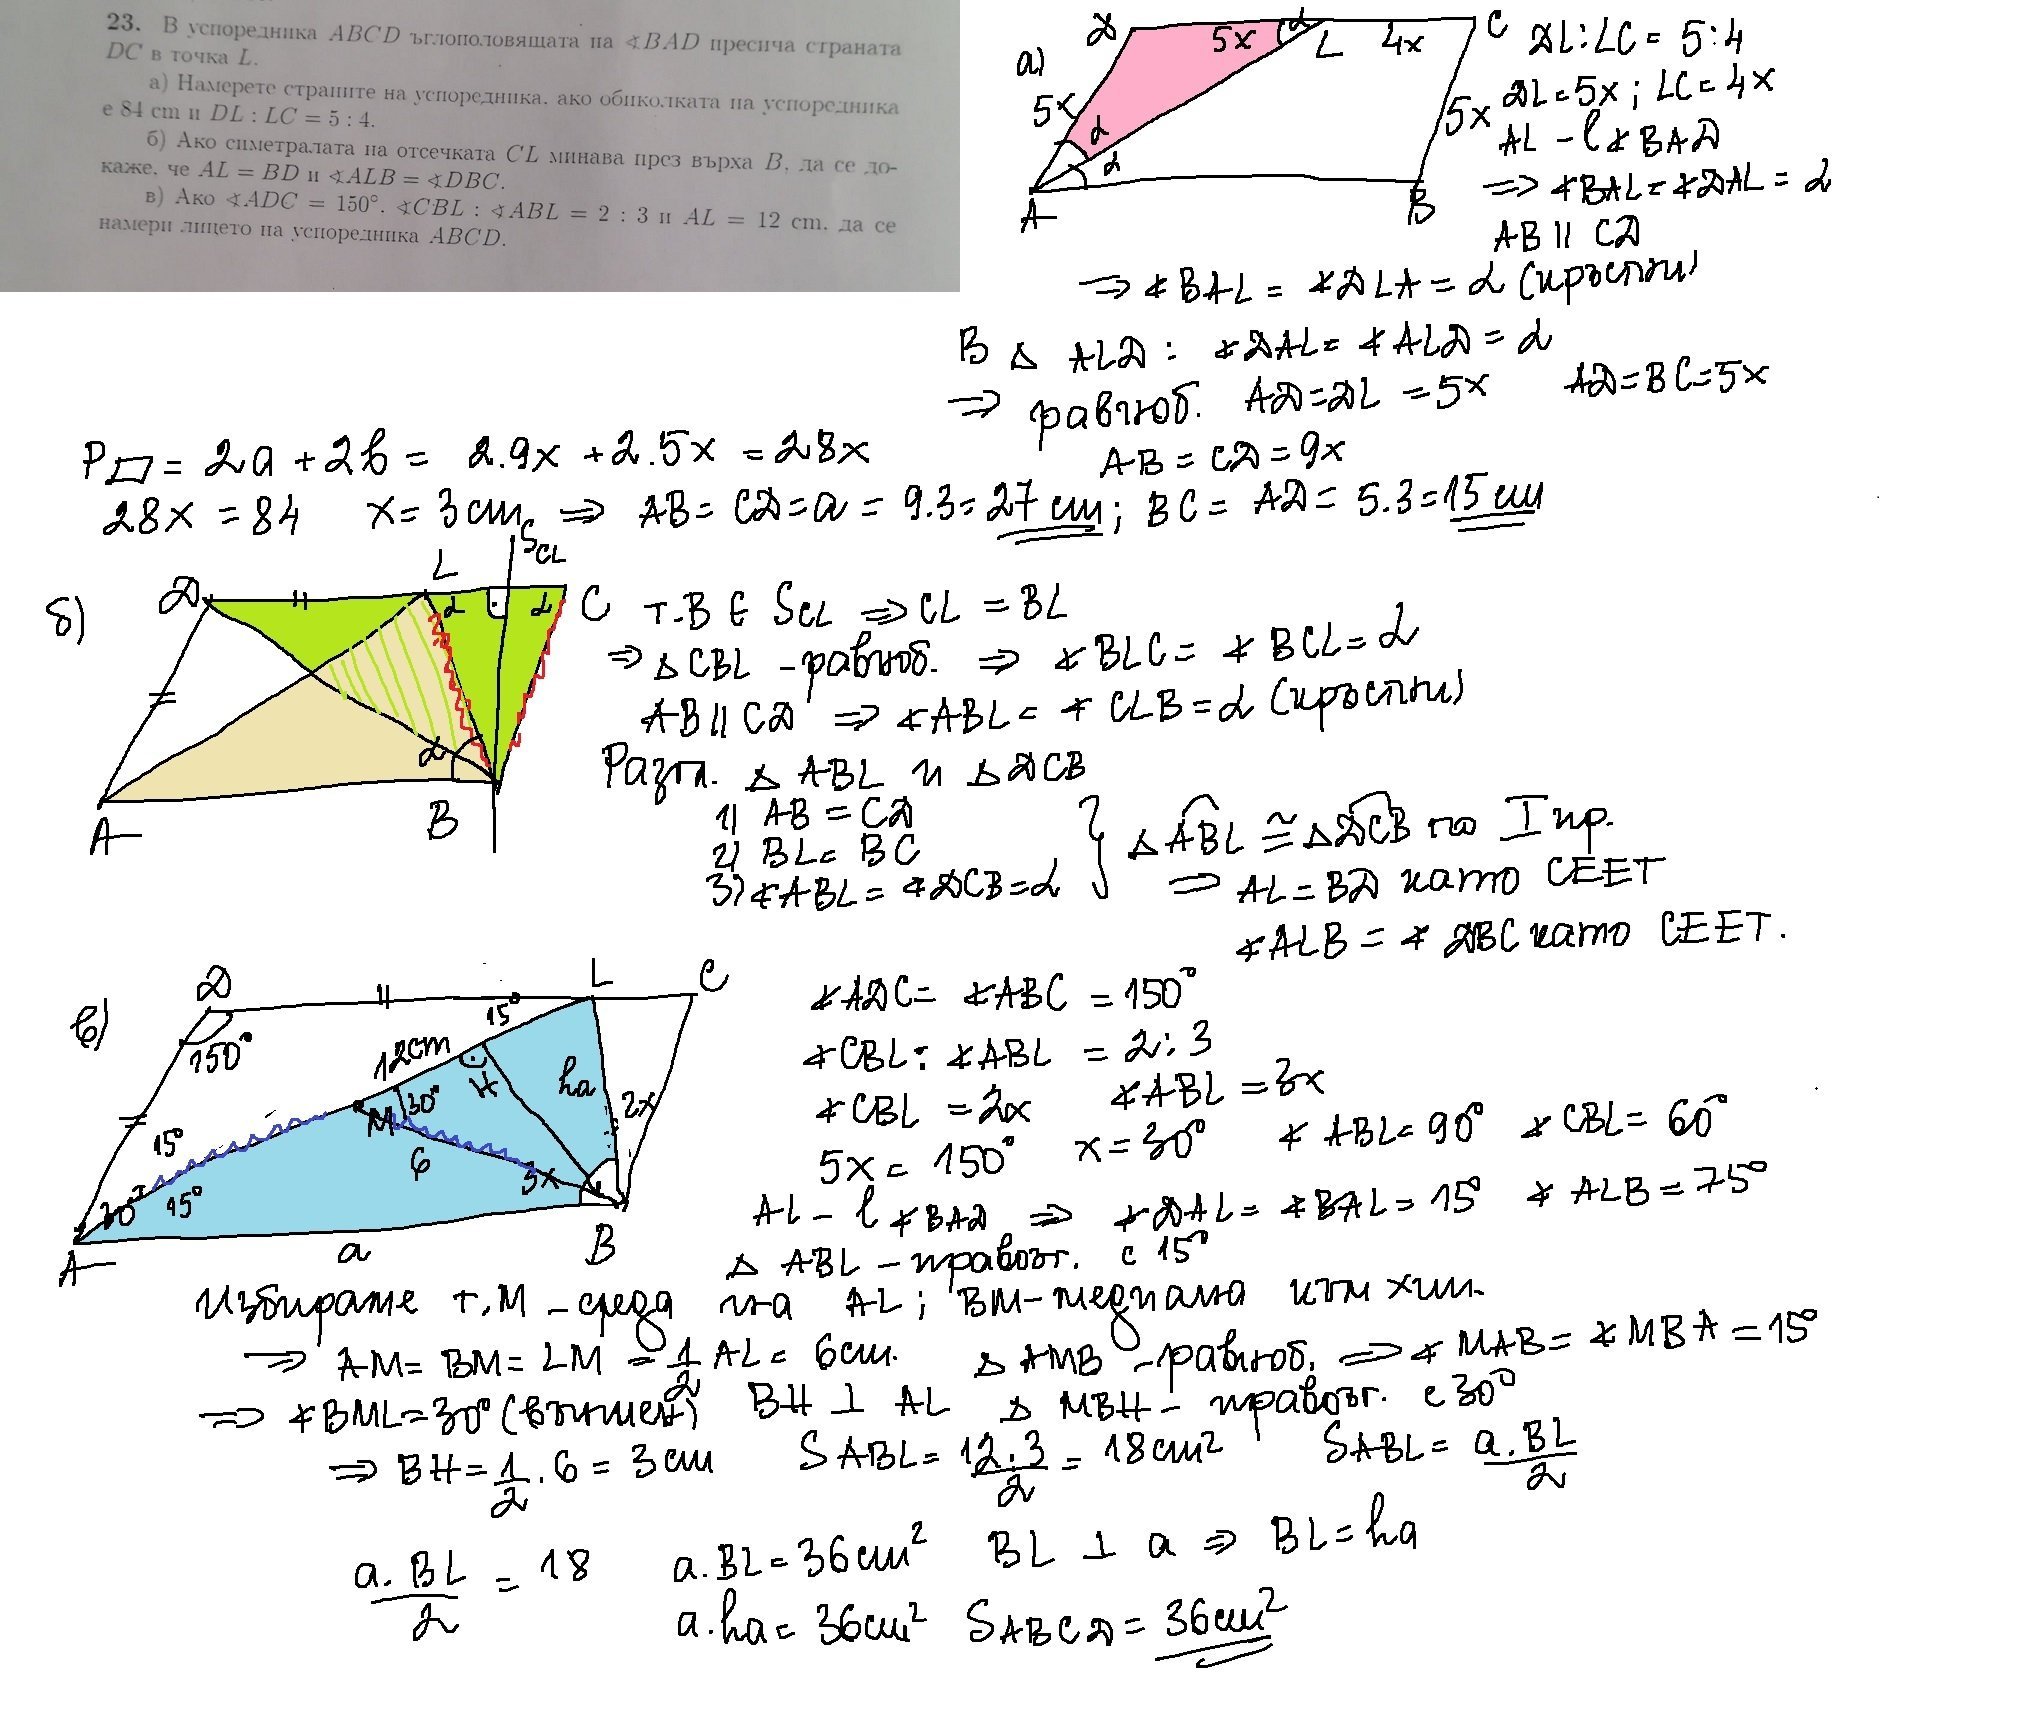 23. В успоредника ABCD ъглополовящата на ∢BAD пресича страната
DC в точка L.
а) Намерете страните на успоредника, ако обиколката на успоредника
е 84 cm и DL : LC = 5 : 4.
б) Ако симетралата на отсечката CL минава през върха B, да се до-
каже, че AL = BD и ∢ALB = ∢DBC.
в) Ако ∢ADC = 150°, ∢CBL : ∢ABL = 2 : 3 и AL = 12 cm, да се
намери лицето на успоредника ABCD.
а)
D 5x α L 4x C
5x α α 5x
A B
DL:LC = 5:4
DL=5x; LC=4x
AL – l ∢BAD
⇒ ∢BAL=∢DAL=α
AB || CD
⇒ ∢BAL = ∢DLA = α (кръстни)
В △ ALD: ∢DAL=∢ALD=α
⇒ равноб. AD=DL=5x AD=BC=5x
AB=CD=9x
P▱ = 2a+2b = 2.9x+2.5x=28x
28x=84 x=3cm ⇒ AB=CD=a=9.3=27 cm; BC=AD=5.3=15 cm
б)
D L SCL C
α α
α
A B
т.B ∈ SCL ⇒ CL = BL
⇒ △CBL – равноб. ⇒ ∢BLC = ∢BCL=α
AB || CD ⇒ ∢ABL = ∢CLB=α (кръстни)
Разгл. △ ABL и △ DCB
1) AB = CD
2) BL = BC
3) ∢ABL = ∢DCB=α
} △ABL ≅ △DCB по I пр.
⇒ AL=BD като СЕЕТ
∢ALB = ∢DBC като СЕЕТ.
в)
D L C
150° 15°
12cm H ha 2x
M 30°
15° 6 3x
30° 15°
A a B
∢ADC = ∢ABC = 150°
∢CBL : ∢ABL = 2:3
∢CBL = 2x ∢ABL = 3x
5x = 150° x = 30° ∢ABL=90° ∢CBL=60°
AL – l ∢BAD ⇒ ∢DAL=∢BAL=15° ∢ALB=75°
△ ABL – правоъг. с 15°
Избираме т. M – среда на AL; BM – медиана към хип.
⇒ AM=BM=LM=1/2 AL=6cm. △ AMB – равноб. ⇒ ∢MAB=∢MBA=15°
⇒ ∢BML=30° (външен) BH ⊥ AL △ MBH – правоъг. с 30°
⇒ BH=1/2.6=3cm SABL=12.3/2=18cm² SABL=a.BL/2
a.BL/2=18 a.BL=36cm² BL ⊥ a ⇒ BL=ha
a.ha=36cm² SABCD=36cm²